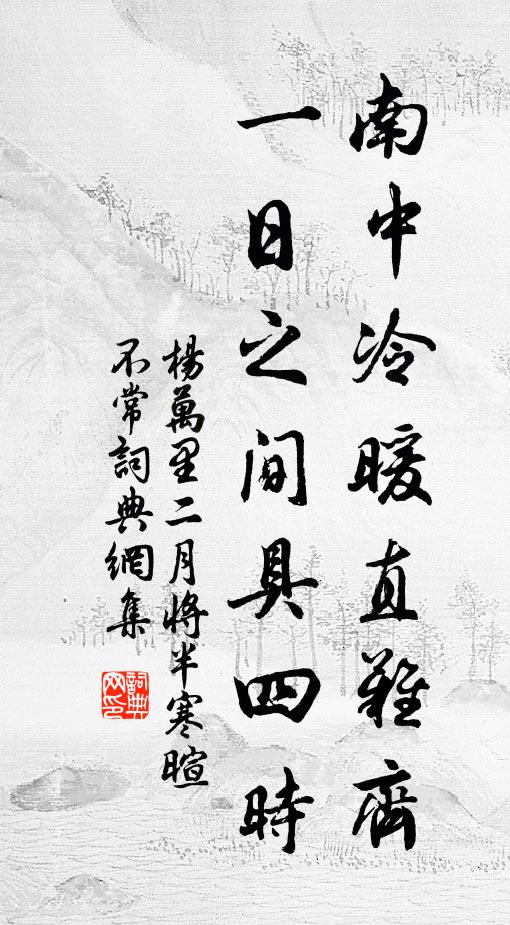 南中冷暖直難齊
一日之间具四時
楊萬里二月將半寒暄
不常詞典網集
詞典网印